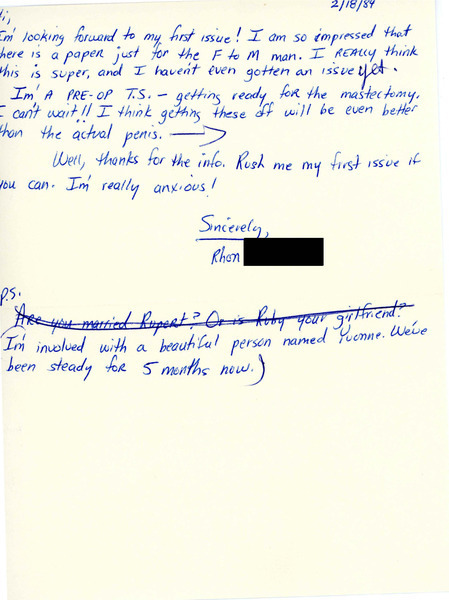 2/18/84
Hi,
I'm looking forward to my first issue! I am so impressed that
there is a paper just for the F to M man. I REALLY think
this is super, and I haven't even gotten an issue yet.
I'm A PRE-OP T.S. — getting ready for the mastectomy.
I can't wait!! I think getting these off will be even better
than the actual penis.
Well, thanks for the info. Rush me my first issue if
you can. I'm really anxious!
Sincerely,
Rhon
P.S.
Are you married Rupert? Or is Ruby your girlfriend?
I'm involved with a beautiful person named Yvonne. We've
been steady for 5 months now.)